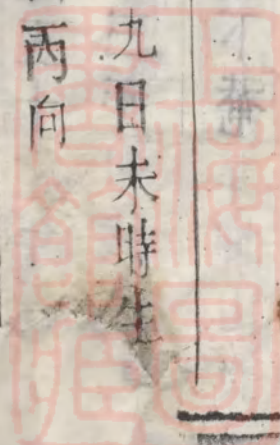 九日未時生
丙向